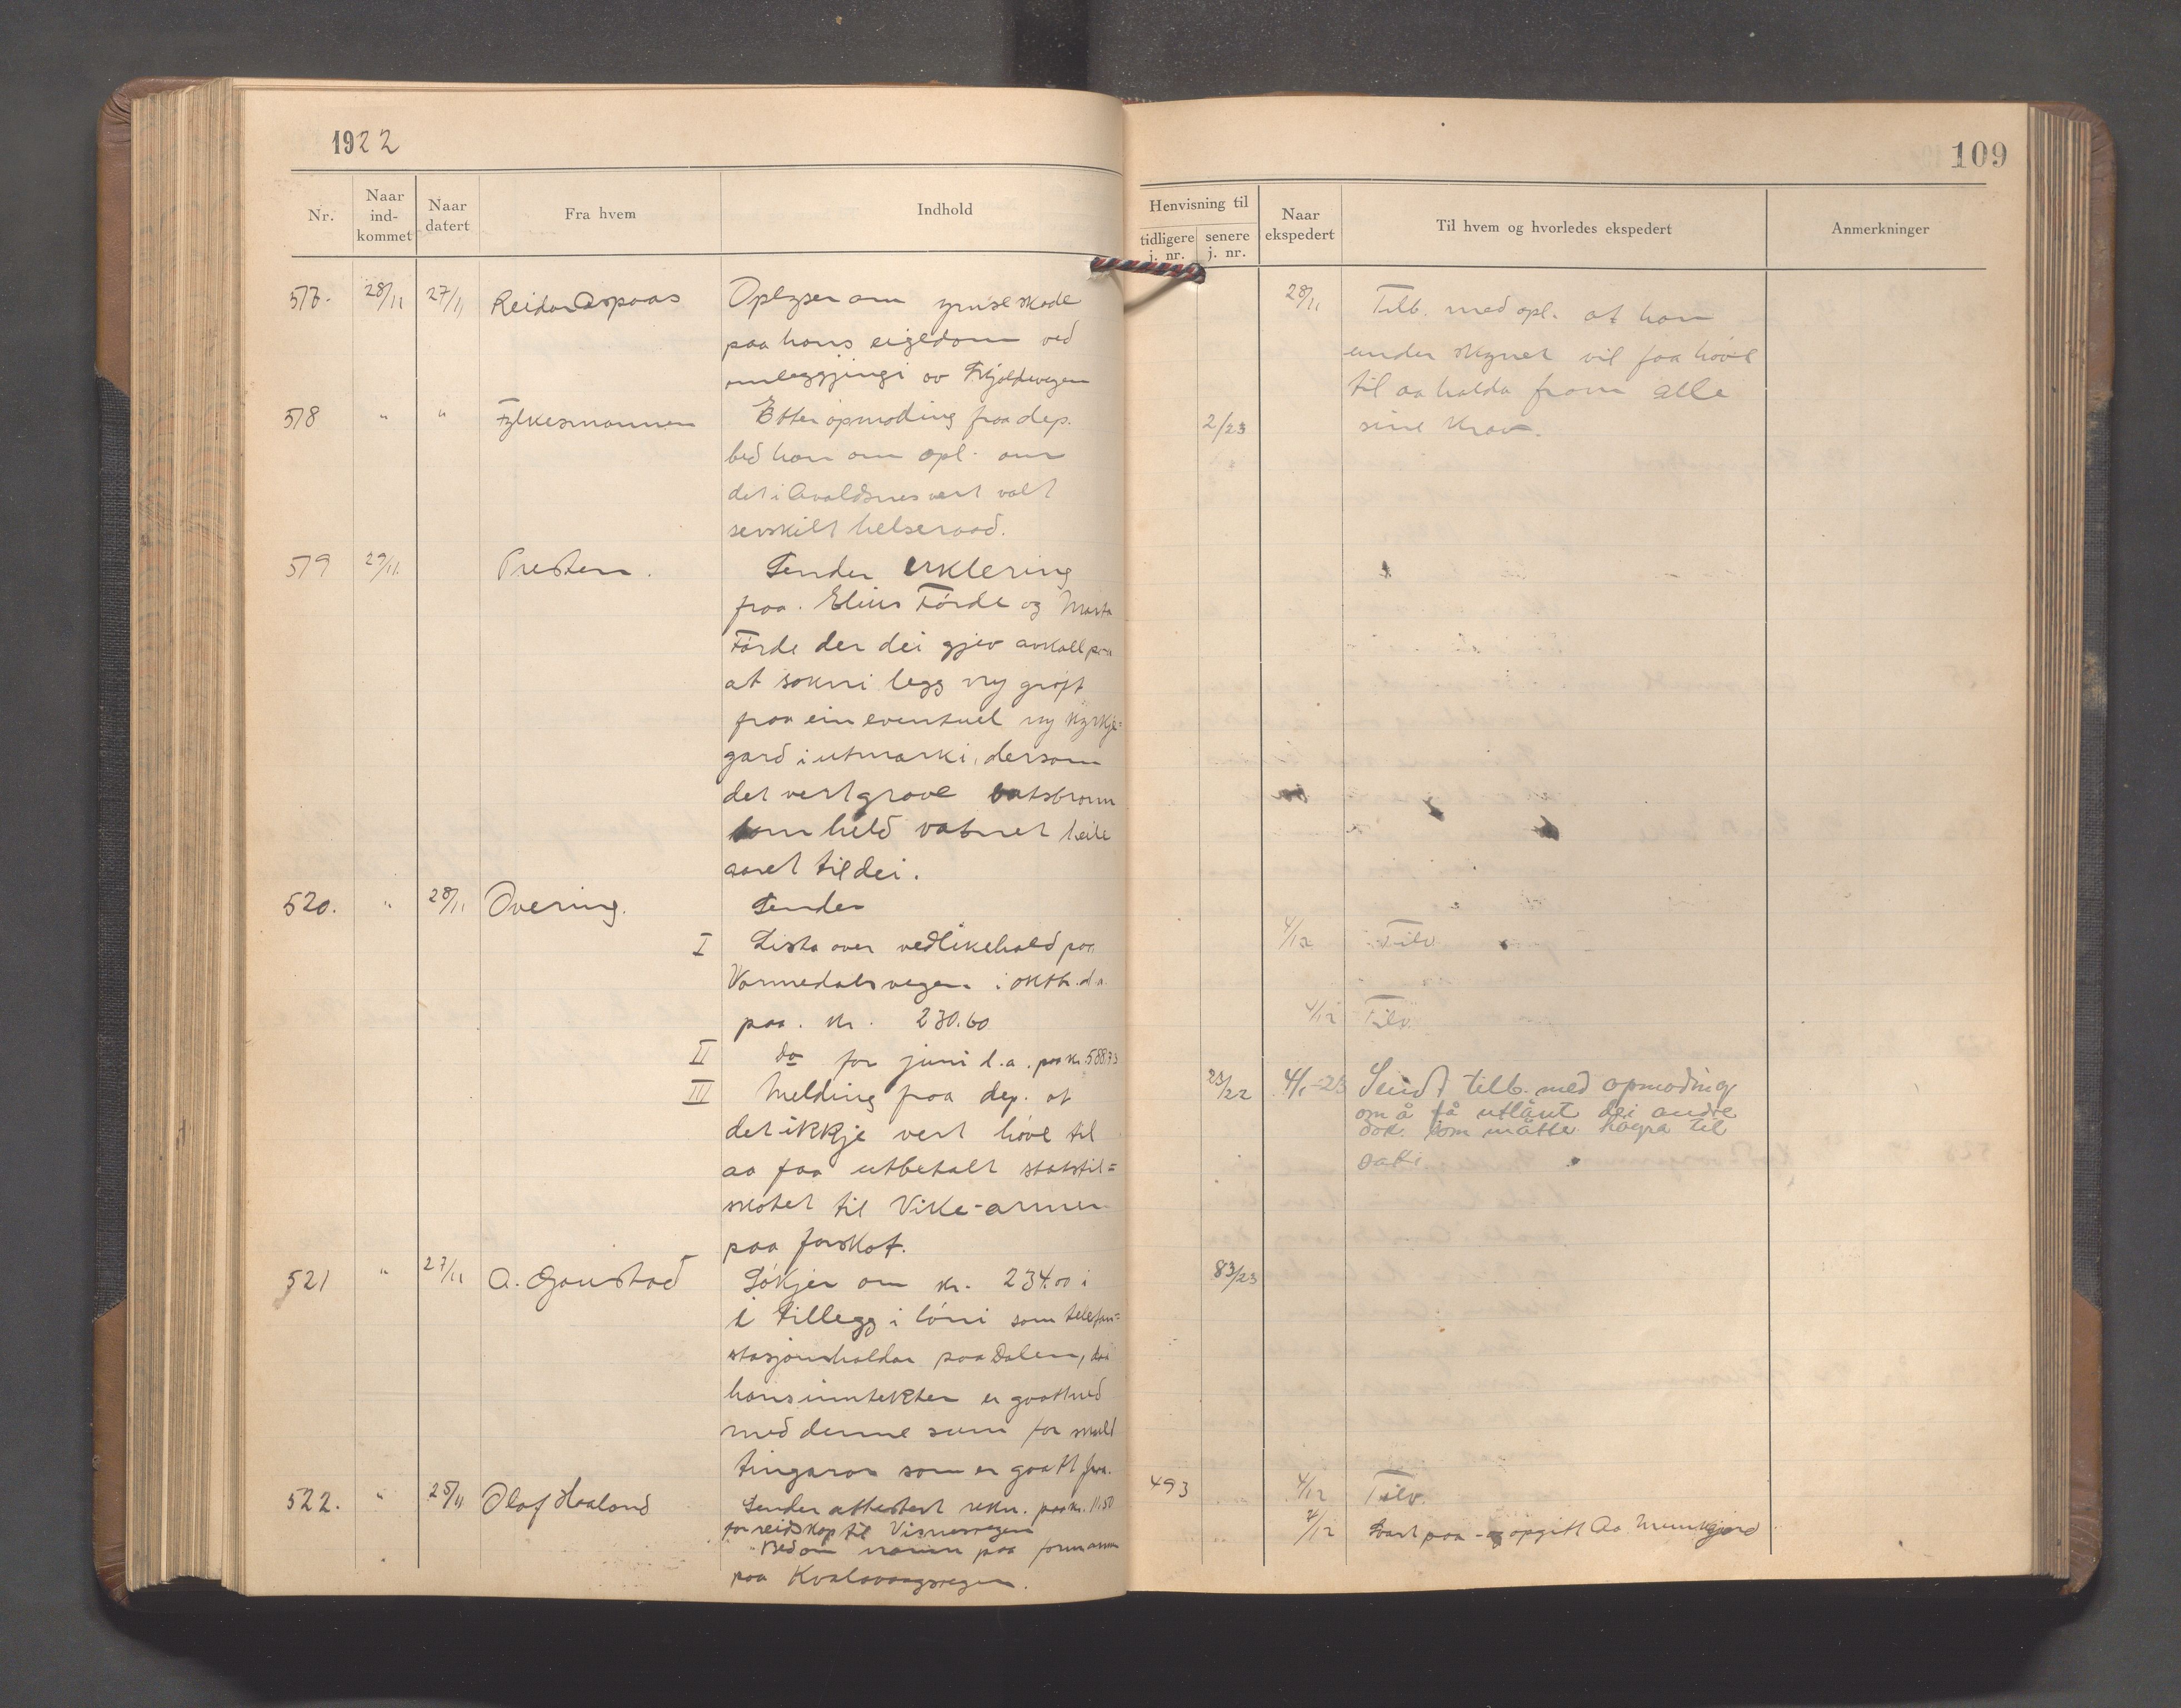 1922
109
Nr.
Naar ind-kommet
Naar datert
Fra hvem
Indhold
Henvisning til
tidligere j. nr.
senere j. nr.
Naar ekspedert
Til hvem og hvorledes ekspedert
Anmerkninger
517. 28/11 27/11 Reidar Aspaas Oplyser om ymse skade
paa hans eigedom ved
omleggjingi av Skjoldavegen
28/11 Tilb. med opl. at han
under skynet vil faa høve
til aa halda fram alle
sine krav.
518 " " Fylkesmannen Etter opmoding fraa dep.
bed han om opl. om
det i Avaldsnes vert valt
serskilt helseraad.
2/23
519 29/11. Presten. Sender erklering
fraa. Elius Førde og Marta
Førde der dei gjev avkall paa
at sokni legg ny grøft
fraa ein eventuel ny kyrkje-
gard i utmarki, dersom
det vert grave vatsbrønn
som held vatnet heile
aaret til dei.
520. " 28/11 Overing. Sender
I Lista over vedlikehald paa
Vormedalsvegen i oktb. d.a.
paa. kr. 230.60
4/12 Tilv.
II do for juni d.a. paa kr. 588.73
4/12 Tilv.
III Melding fraa dep. at
det ikkje vert høve til
aa faa utbetalt statstil-
skotet til Vike-armen
paa forskot.
23/22 4/1-23 Sendt tilb. med opmoding
om å få utlånt dei andre
dok. som måtte høyra til
saki.
521 " 27/11 A. Gaustad Søkjer om kr. 234.00 i
i tillegg i løni som telefon-
stasjonshaldar paa Dalen, daa
hans inntekter er gaatt ned
med denne sum for
tingarar som er gaatt fraa.
83/23
522. " 25/11 Olaf Haaland Sender attestert rekn. paa kr. 11.50
for reidskap til Visnesvegen
Bed om namn paa formannen
paa Kvalavaagvegen.
493 4/12 Tilv.
4/12 Svart paa - og opgitt Aa. Munkejord